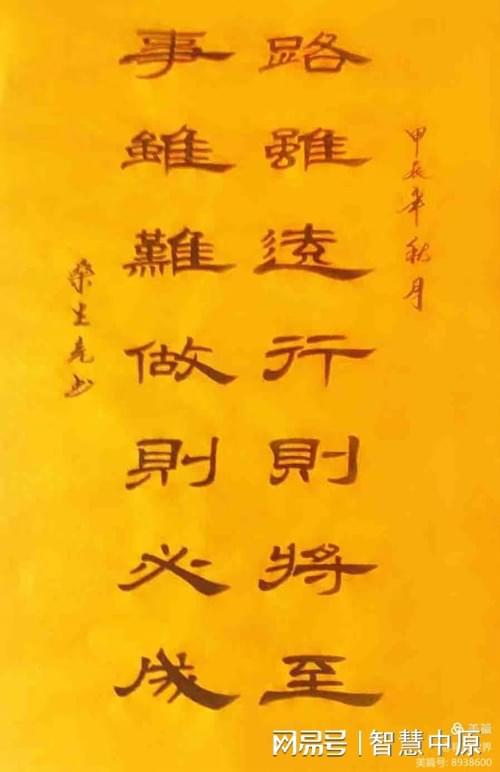 甲辰年秋月
路雖遠行則將至
事雖難做則必成
桑生亮书
美篇
界
网易号|智慧中原
美篇号: 8938600